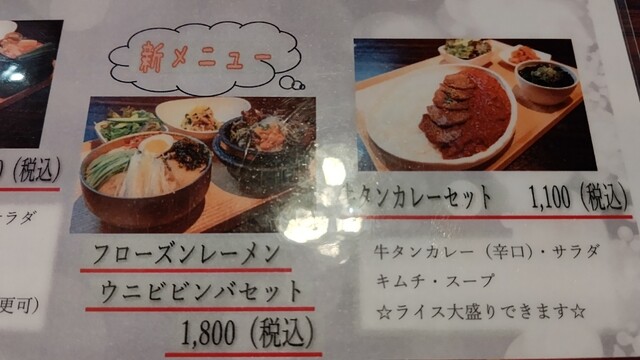 新メニュー
(税込)
ラダ
更可)
フローズンレーメン
ウニビビンバセット
1,800 (税込)
牛タンカレーセット 1,100 (税込)
牛タンカレー (辛口)・サラダ
キムチ・スープ
☆ライス大盛りできます☆